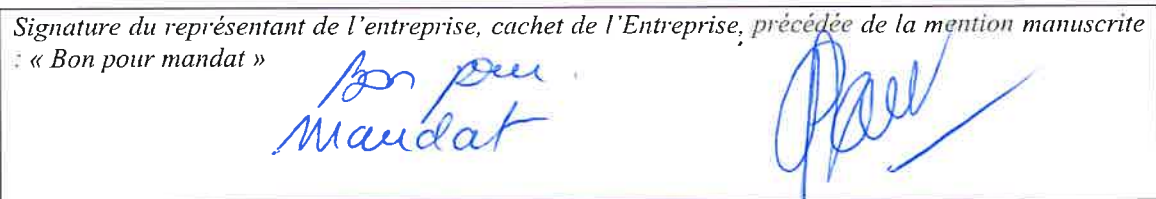 Signature du représentant de l'entreprise, cachet de l'Entreprise, précédée de la mention manuscrite
: « Bon pour mandat »
Bon pour
Mandat